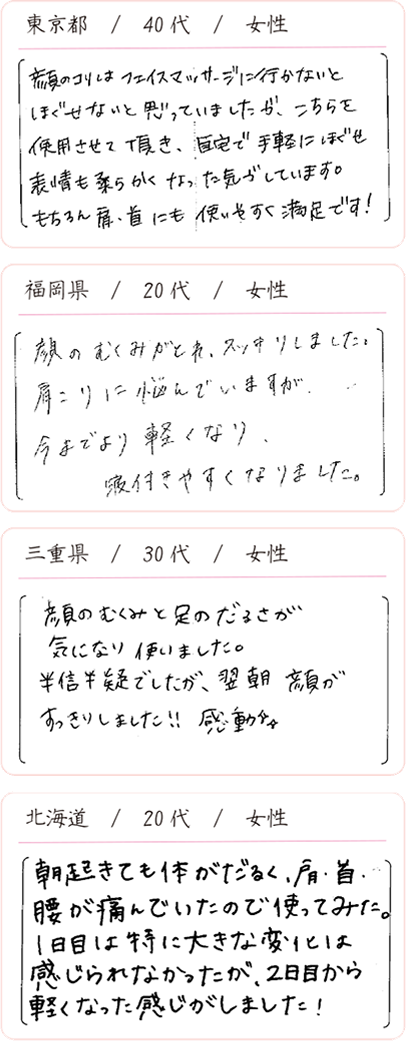 東京都 / 40代 / 女性
顔のコリはフェイスマッサージに行かないと
ほぐせないと思っていましたが、こちらを
使用させて頂き、自宅で手軽にほぐせ
表情も柔らかくなった気がしています。
もちろん肩・首にも使いやすく満足です!
福岡県 / 20代 / 女性
顔のむくみがとれ、スッキリしました。
肩こりに悩んでいますが、
今までより軽くなり、
寝付きやすくなりました。
三重県 / 30代 / 女性
顔のむくみと足のだるさが
気になり使いました。
半信半疑でしたが、翌朝 顔が
すっきりしました!! 感動
北海道 / 20代 / 女性
朝起きても体がだるく、肩・首・
腰が痛んでいたので使ってみた。
1日目は特に大きな変化は
感じられなかったが、2日目から
軽くなった感じがしました!